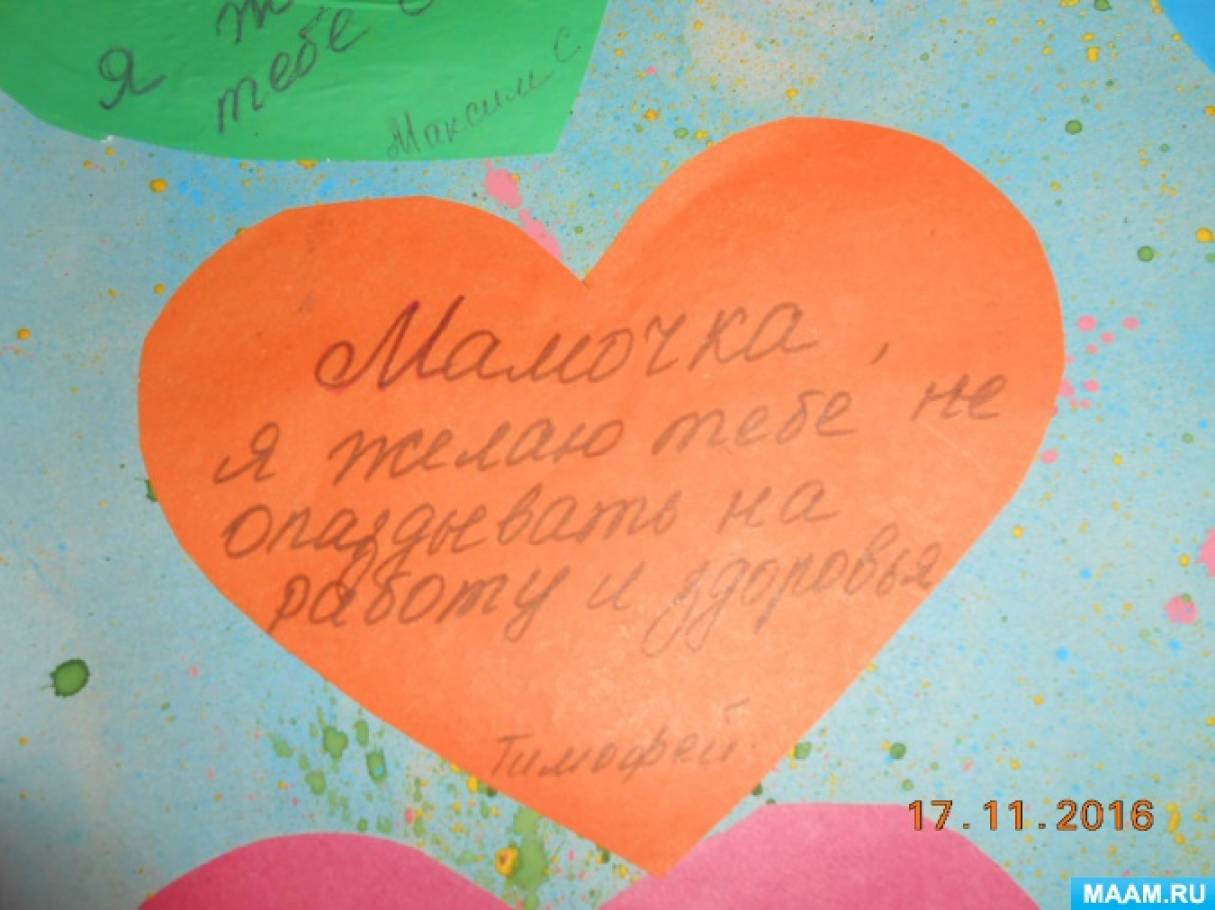 я ж
тебе
Максим С
Мамочка,
я желаю тебе не
опаздывать на
работу и здоровья
Тимофей
17.11.2016
MAAM.RU